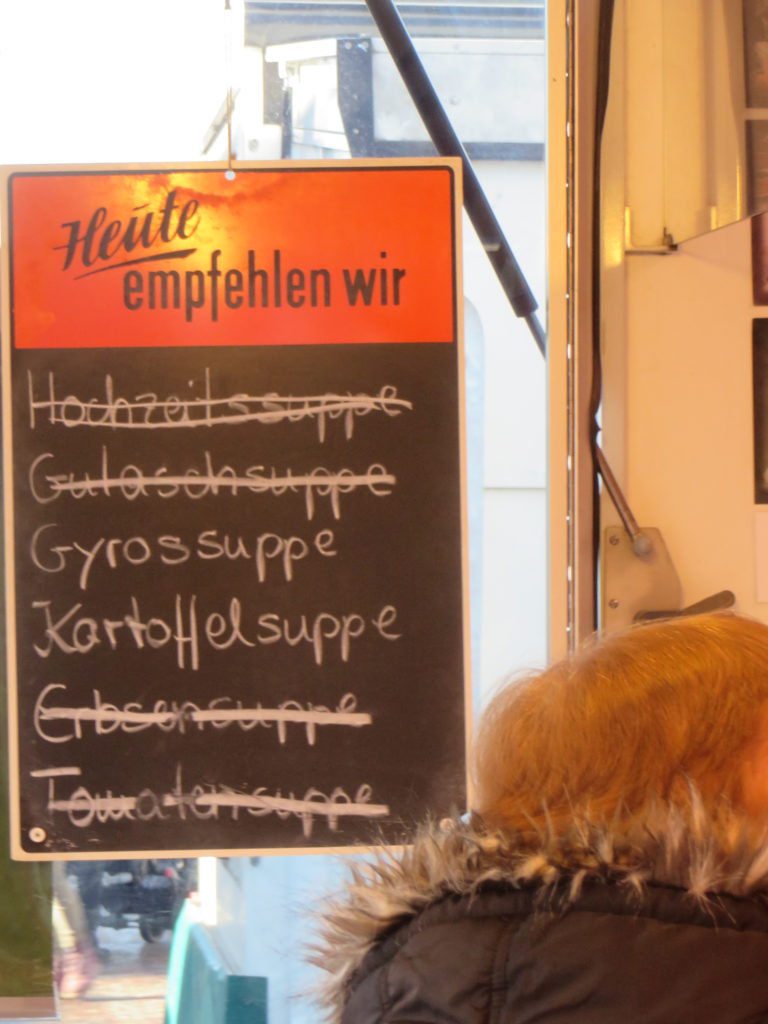 Heute
empfehlen wir
Hochzeitssuppe
Gulaschsuppe
Gyrossuppe
Kartoffelsuppe
Erbsensuppe
Tomatensuppe